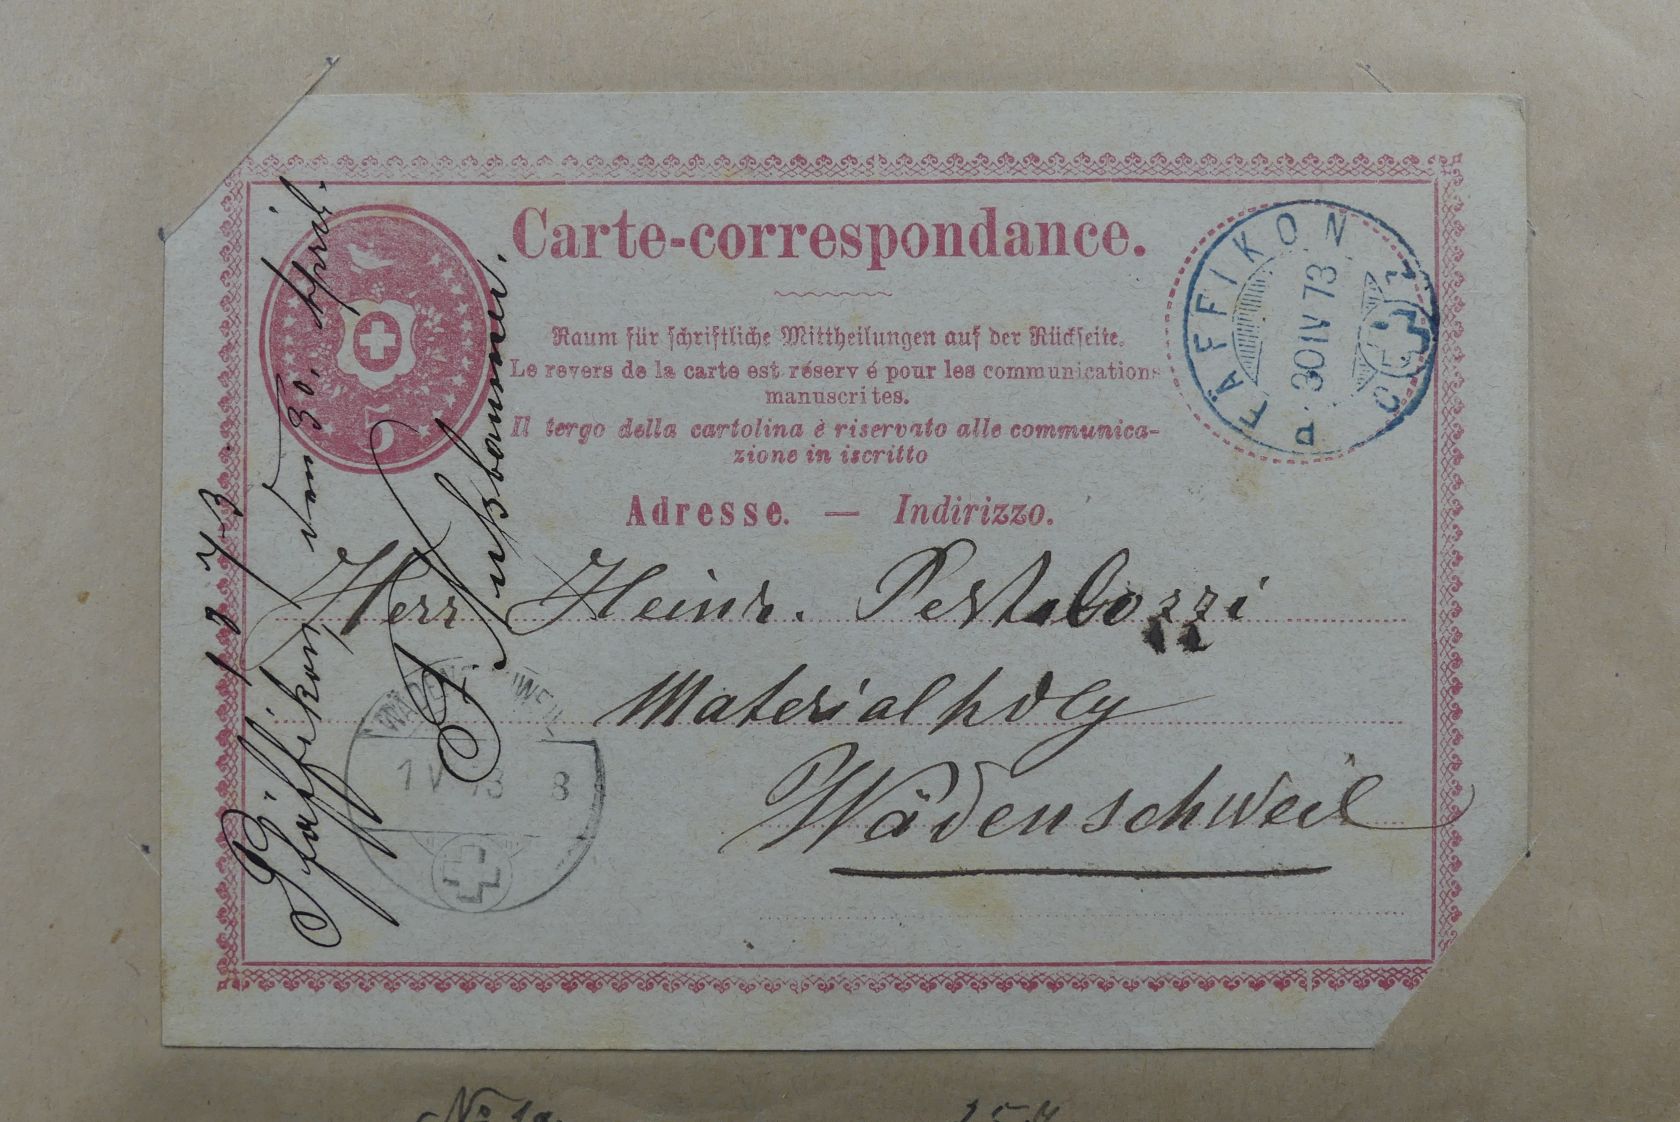 Carte-correspondance.
Raum für schriftliche Mittheilungen auf der Rückseite.
Le revers de la carte est réserv é pour les communications
manuscrites.
Il tergo della cartolina è riservato alle communica-
zione in iscritto
Adresse. — Indirizzo.
5
PFÄFFIKON
30 IV 73
Herr Heinr. Pestalozzi
Materialhdlg
Wädenschweil
WÄDENSCHWEIL
1 V 73 8
Pfäffikon, den 30. April
1873
J. Nussbaumer.
No 1a.